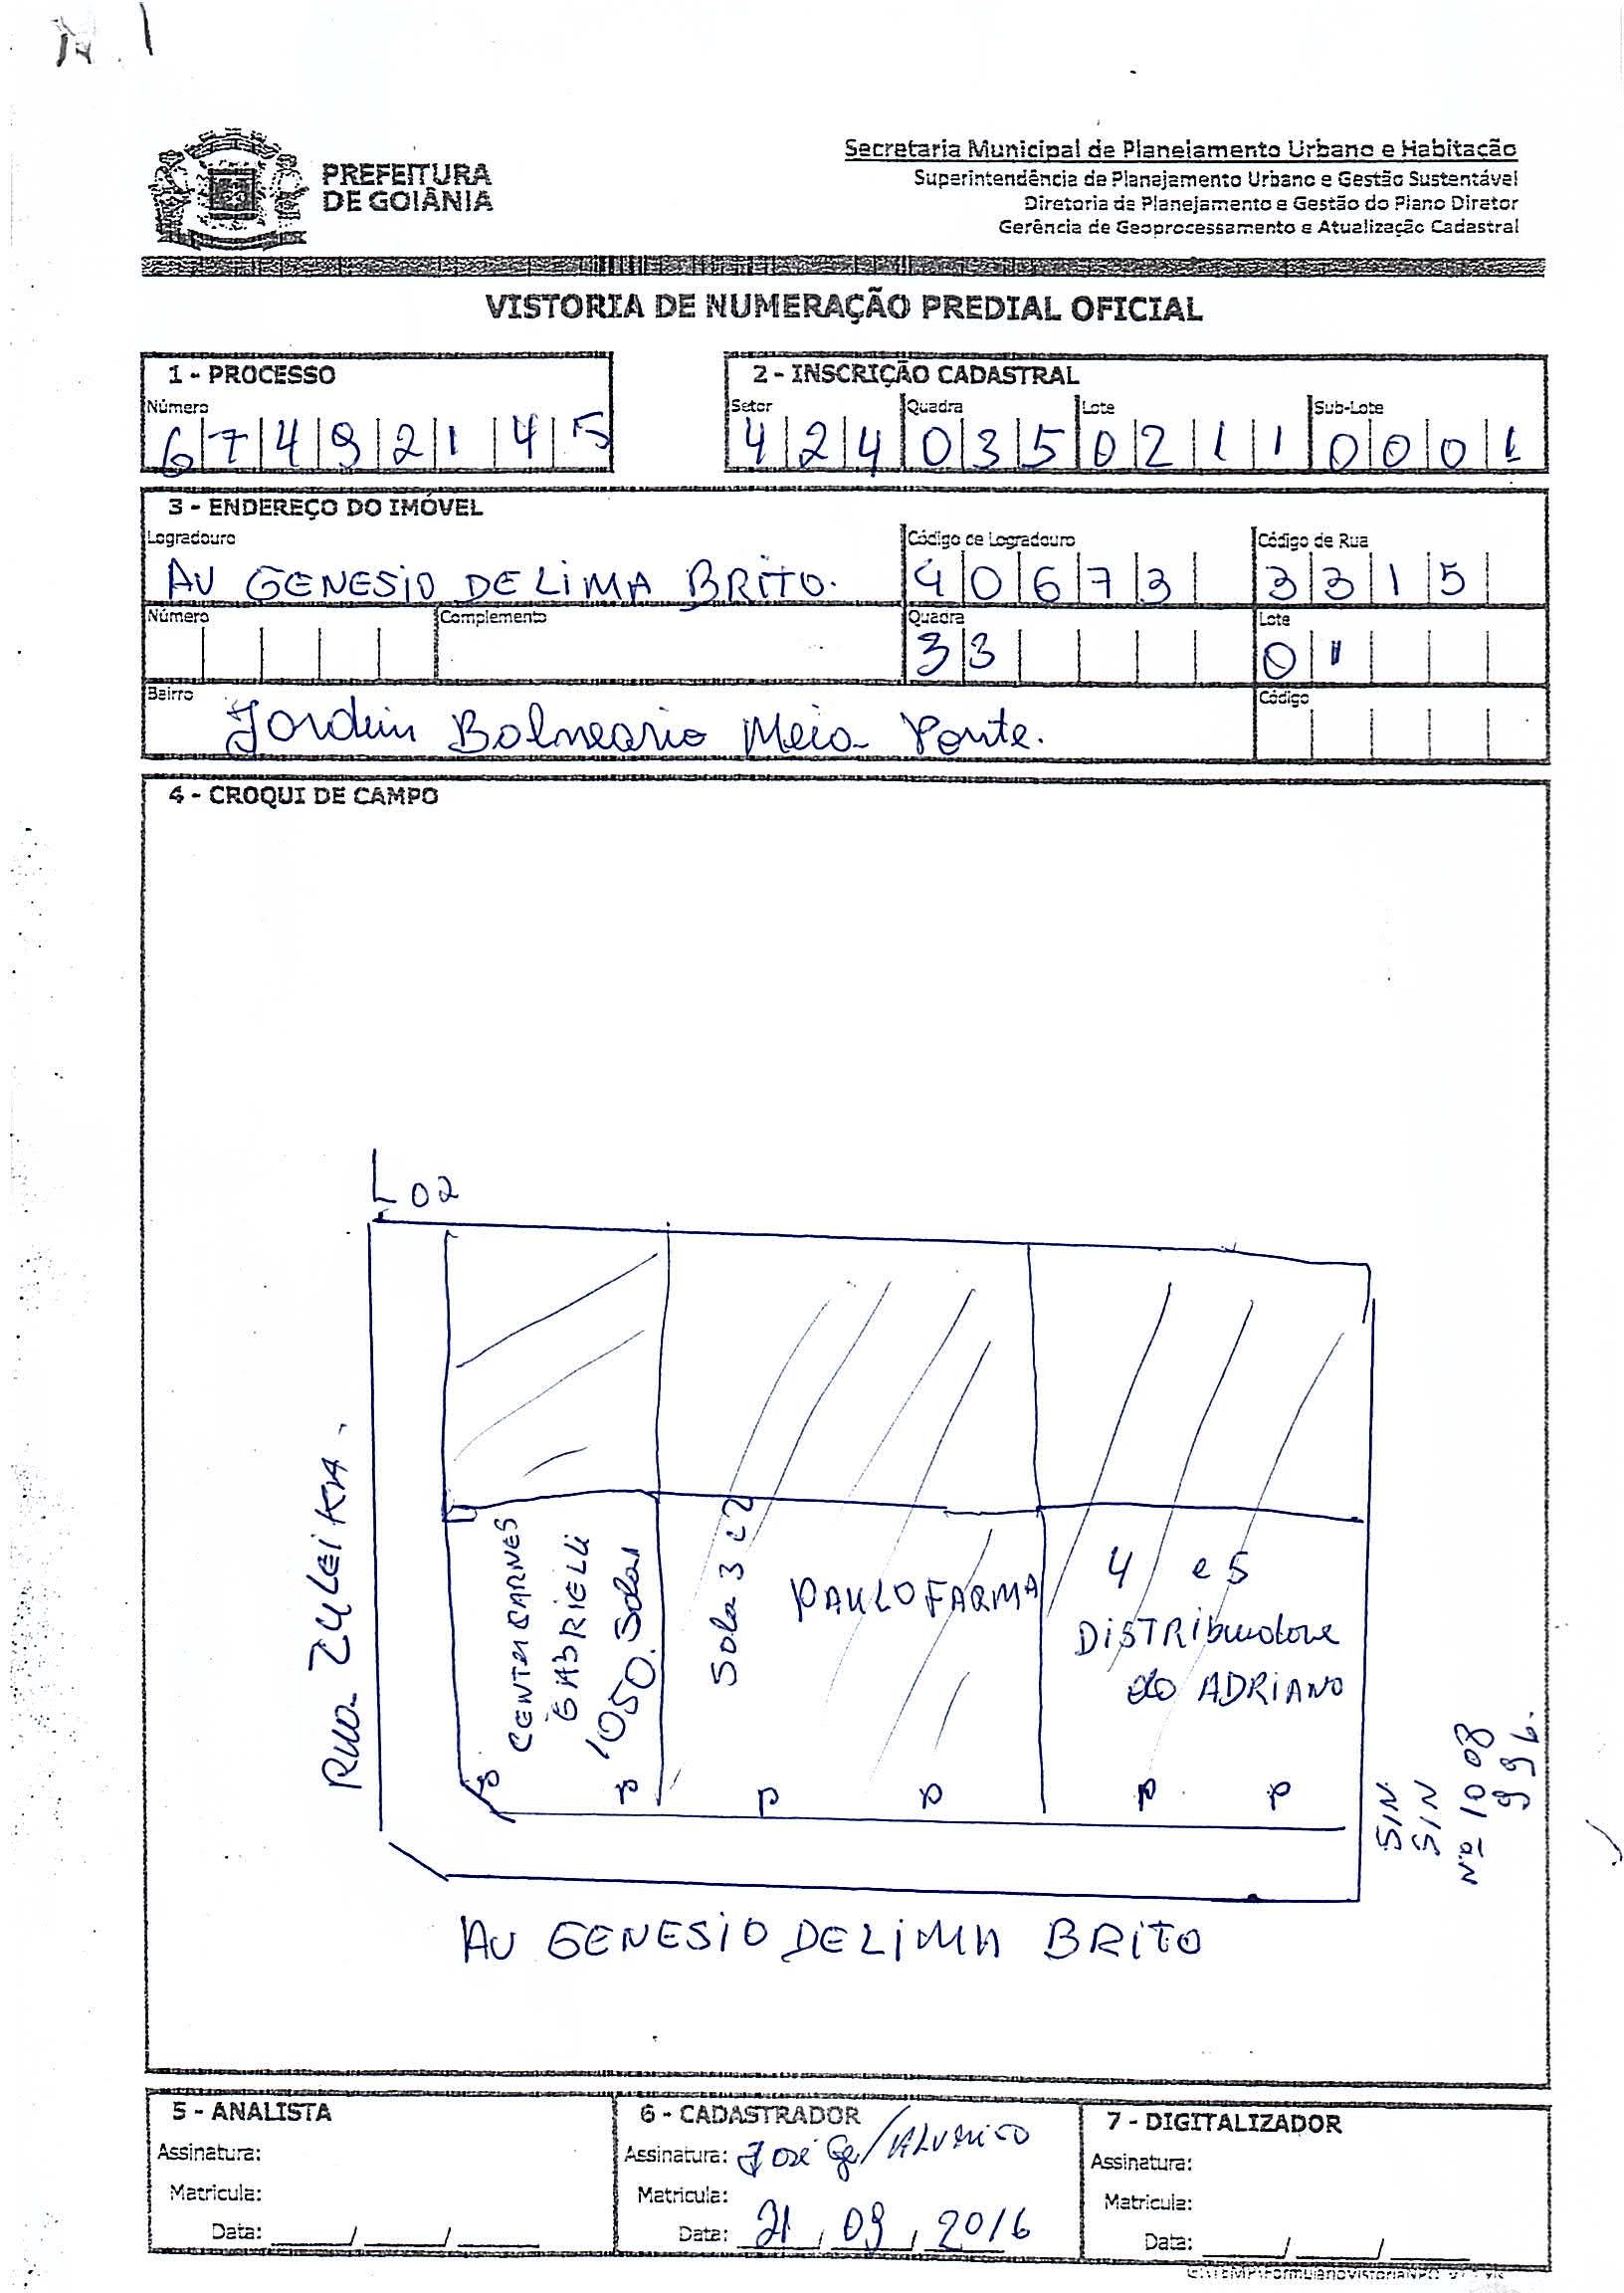 PREFEITURA
DE GOIÂNIA
Secretaria Municipal de Planejamento Urbano e Habitação
Superintendência de Planejamento Urbano e Gestão Sustentável
Diretoria de Planejamento e Gestão do Plano Diretor
Gerência de Geoprocessamento e Atualização Cadastral
VISTORIA DE NUMERAÇÃO PREDIAL OFICIAL
1 - PROCESSO
Número
6 7 4 9 2 1 4 5
2 - INSCRIÇÃO CADASTRAL
Setor Quadra Lote Sub-Lote
4 2 4 0 3 5 0 2 1 1 0 0 0 1
3 - ENDEREÇO DO IMÓVEL
Logradouro Código de Logradouro Código de Rua
AV GENESIO DE LIMA BRITO. 4 0 6 7 3 3 3 1 5
Número Complemento Quadra Lote
3 3 0 1
Bairro Código
Jardim Balneario Meia Ponte.
4 - CROQUI DE CAMPO
L 02
Rua ZULEIKA.
CENTRO CARNES
GABRIELLI
1050. Sala 1
Sala 3 e 2
PAULO FARMA
4 e 5
DISTRIbuidora
do ADRIANO
P P P P P P
S/N
S/N
Nº 1008
996.
AV GENESIO DE LIMA BRITO
5 - ANALISTA
Assinatura:
Matricula:
Data: ____/____/____
6 - CADASTRADOR
Assinatura: José
Matricula:
Data: 21/09/2016
7 - DIGITALIZADOR
Assinatura:
Matricula:
Data: ____/____/____